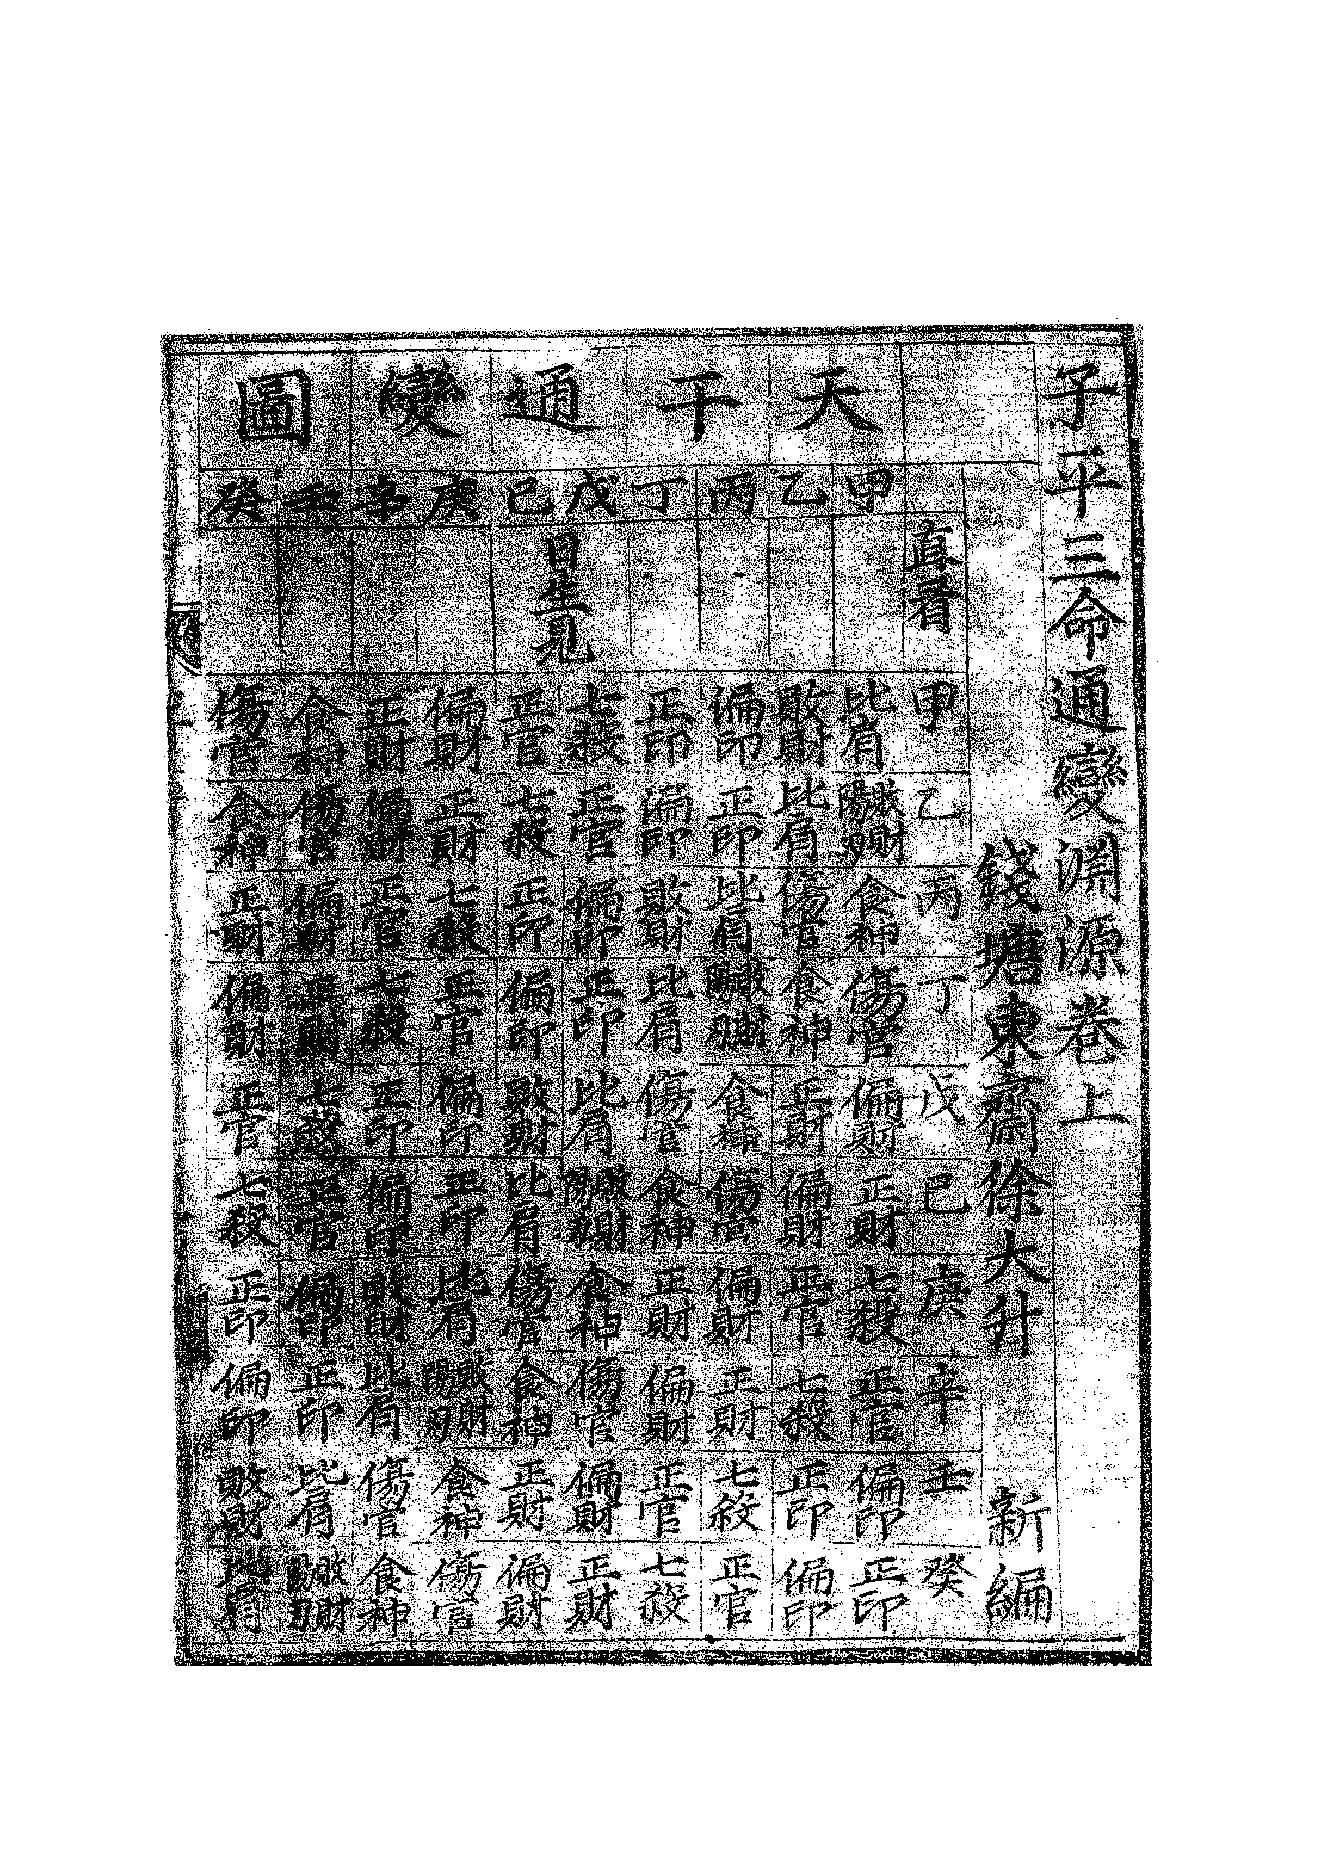 子平三命通變淵源卷上
錢塘東齋徐大升 新編
天干通變圖
直看 甲 乙 丙 丁 戊 己 庚 辛 壬 癸
日生見
甲 比肩 敗財陽刃 食神 傷官 偏財 正財 七殺 正官 偏印 正印
乙 敗財 比肩 傷官 食神 正財 偏財 正官 七殺 正印 偏印
丙 偏印 正印 比肩 敗財陽刃 食神 傷官 偏財 正財 七殺 正官
丁 正印 偏印 敗財 比肩 傷官 食神 正財 偏財 正官 七殺
戊 七殺 正官 偏印 正印 比肩 敗財陽刃 食神 傷官 偏財 正財
己 正官 七殺 正印 偏印 敗財 比肩 傷官 食神 正財 偏財
庚 偏財 正財 七殺 正官 偏印 正印 比肩 敗財陽刃 食神 傷官
辛 正財 偏財 正官 七殺 正印 偏印 敗財 比肩 傷官 食神
壬 食神 傷官 偏財 正財 七殺 正官 偏印 正印 比肩 敗財陽刃
癸 傷官 食神 正財 偏財 正官 七殺 正印 偏印 敗財 比肩